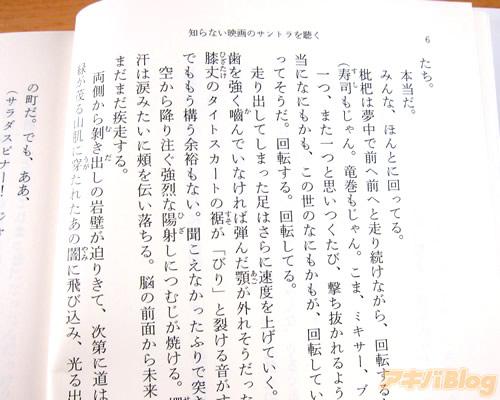 知らない映画のサントラを聴く
6
たち。
本当だ。
みんな、ほんとに回ってる。
枇杷は夢中で前へ前へと走り続けながら、回転する
(寿司もじゃん。竜巻もじゃん。こま、ミキサー、プ
一つ、また一つと思いつくたび、撃ち抜かれるよう
当になにもかも、この世のなにもかもが、回転してい
ってそうだ。回転する。回転してる。
走り出してしまった足はさらに速度を上げていく。
歯を強く嚙んでいなければ弾んだ顎が外れそうだった
膝丈のタイトスカートの裾が「びり」と裂ける音がす
でももう構う余裕もない。聞こえなかったふりで突き
空から降り注ぐ強烈な陽射しにつむじが焼ける。
汗は涙みたいに頰を伝い落ちる。脳の前面から未来
まだまだ疾走する。
両側から剝き出しの岩壁が迫りきて、次第に道は
緑が茂る山肌に穿たれたあの闇に飛び込み、光る出
の町だ。でも、ああ、
(サラダスピナー!
アキバBlog